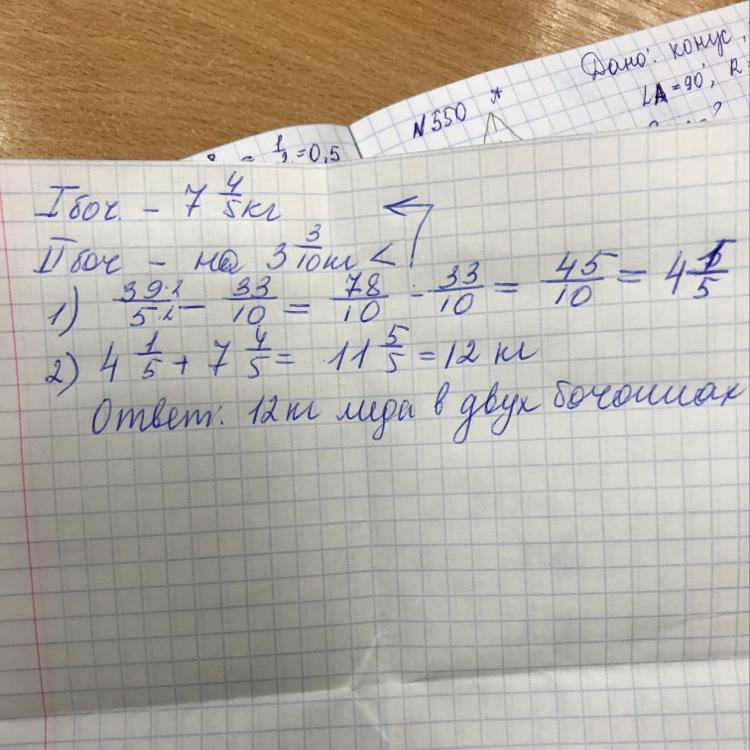 Дано: конус,
∠A = 90°, R =
N 550
1/2 = 0,5
I боч. – 7 4/5 кг
II боч – на 3 3/10 кг <
1) 39·2/5·2 – 33/10 = 78/10 - 33/10 = 45/10 = 4 5/5
2) 4 1/5 + 7 4/5 = 11 5/5 = 12 кг
Ответ: 12 кг мёда в двух бочонках